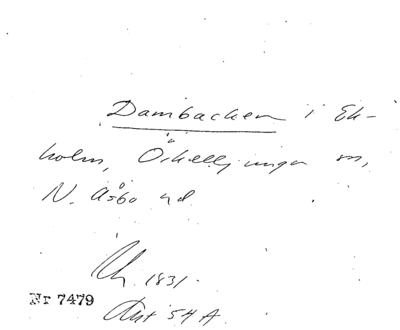 Dambacken i Ek-
holm, Örkelljunga sn,
N. Åsbo hd.
1831.
Nr 7479
Akt 54 A.